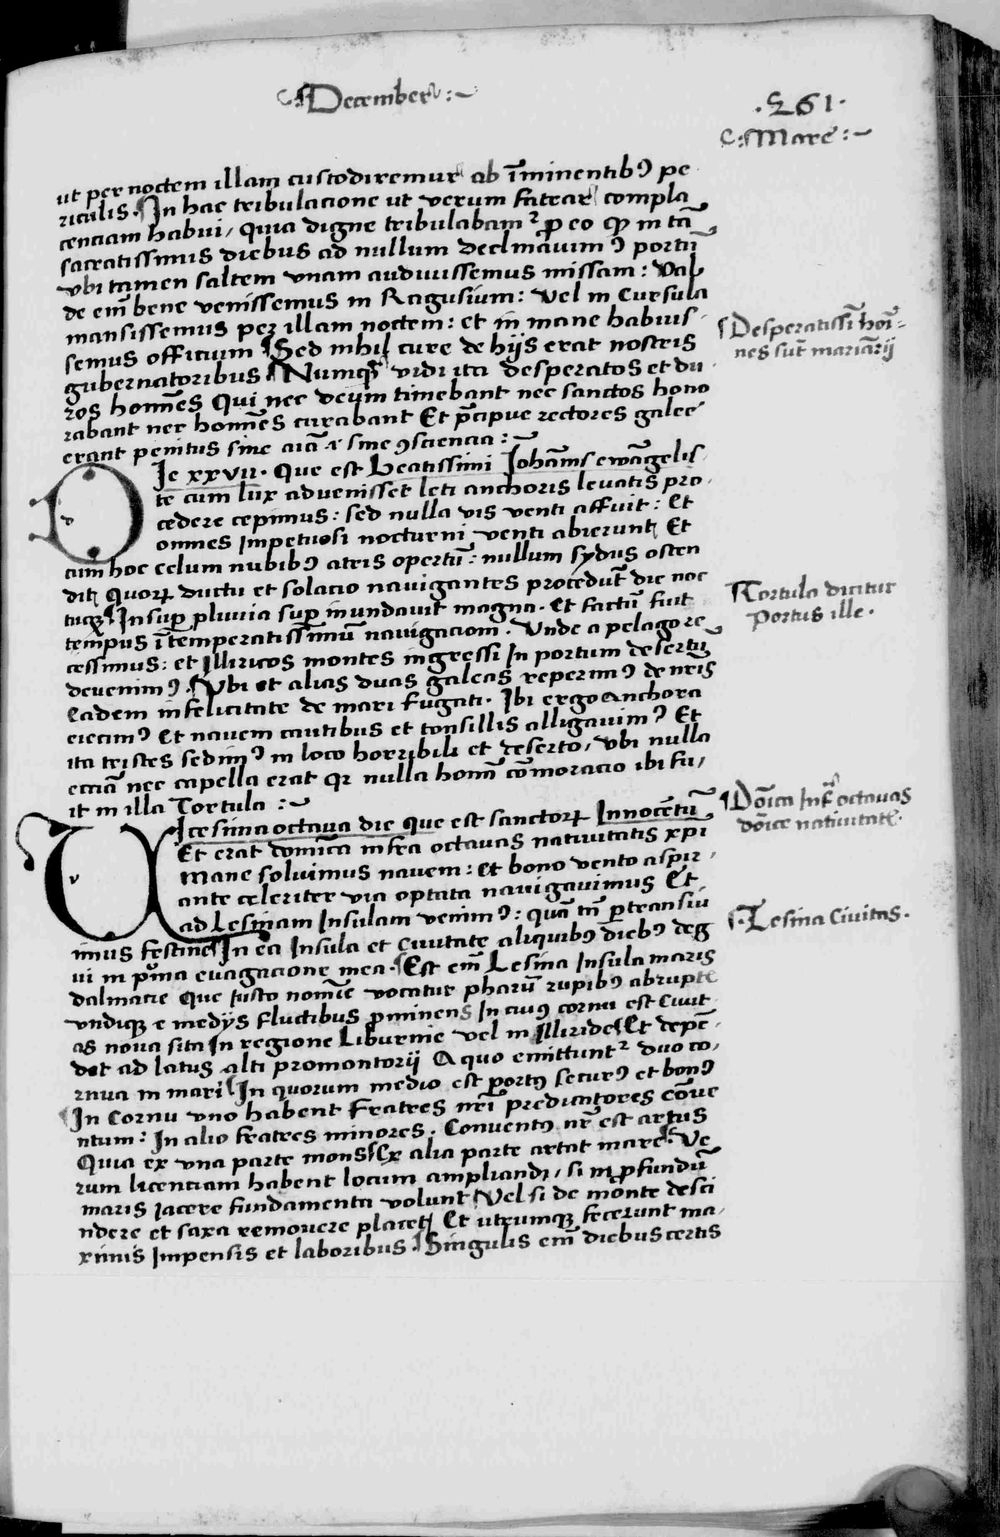 December :~
.261.
Mare :~
ut per noctem illam custodiremur ab īminentibꝰ pe
riculis. In hac tribulacione ut verum fatear compla
cenciam habui, quia digne tribulabamᷣ ꝓ eo ꝙ in tā
sacratissimis diebus ad nullum declinavimꝰ portū
vbi tamen saltem vnam audivissemus missam: Val
de em̄ bene venissemus in Ragusium: Vel in Cursula
mansissemus per illam noctem: et in mane habuis-
semus officium Sed nihil cure de hijs erat nostris
gubernatoribus. Numqᷓ vidi ita desperatos et du
ros homīes Qui nec deum timebant nec sanctos hono
rabant nec homīes curabant Et p̄cipue rectores galee
erant penitus sine aīa ⁊ sine ꝯsciencia :~
Desperatissī hoī=
nes sūt marīarij
DIe xxvij. Que est beatissimi Johānis ewāgelis-
te cum lux advenisset leti anchoris levatis pro-
cedere cepimus: sed nulla vis venti affuit: Et
omnes impetuosi nocturni venti abierunt Et
cum hoc celum nubibꝰ atris opertū: nullum sydus osten
dit Quoꝝ ductu et solacio navigantes procedūt die noc
tuqꝫ Insup̱ pluvia sup̱ inundavit magna. Et factū fuit
tempus ītemperatissimū navigacioni. Vnde a pelago re
cessimus: et Illiricos montes ingressi In portum desertū
devenimꝰ. Vbi et alias duas galeas reperimꝰ de nr̄is
Eadem infelicitate de mari fugati. Ibi ergo anchora
eiecimꝰ Et navem cautibus et tonsillis alligavimꝰ Et
ita tristes sedimꝰ in loco horribili et deserto, vbi nulla
ecciā nec capella erat qꝛ nulla homī cōmoracio ibi fu,
it in illa Tortula :~
Tortula dicitur
Portus ille.
VIcesima octava die que est sanctoꝝ Innocētū
Et erat dominīca infra octavas nativitatis xp̄i
Mane solvimus navem: Et bono vento aspir-
ante celeriter via optata navigavimus Et
ad Lesinam Insulam venimꝰ: quā tn̄ p̱transiv
imus festine In ea Insula et Civitate aliquibꝰ diebꝰ deg
vi in p̱ma evagacione mea. Est em̄ Lesina Insula maris
dalmacie Que Justo nomīe vocatur pharū rupibꝰ abrupt
vndiqꝫ e medijs fluctibus p̱minens In cuiꝰ cornu est Civit-
as nova sita In regione Liburnie vel in Illiride Et depē-
det ad latus alti promontorij A quo emittuntᷣ duo co-
rnua in mari In quorum medio est portꝰ securꝰ et bonꝰ
In Cornu vno habent Fratres nr̄i predicatores cōve
ntum: In alio fratres minores. Conventꝰ nr̄ est artus
Quia ex vna parte mons Ex alia parte artat mare. Ve
rum licenciam habent locum ampliandi, si in ꝓfundū
maris jacere fundamenta volunt Vel si de monte desci
ndere et saxa removere placet Et utrumqꝫ fecerunt ma-
ximis Impensis et laboribus. Singulis em̄ diebus certis
Dōica Inf̄ octavas
dōice nativitat.
Lesina Civitas.